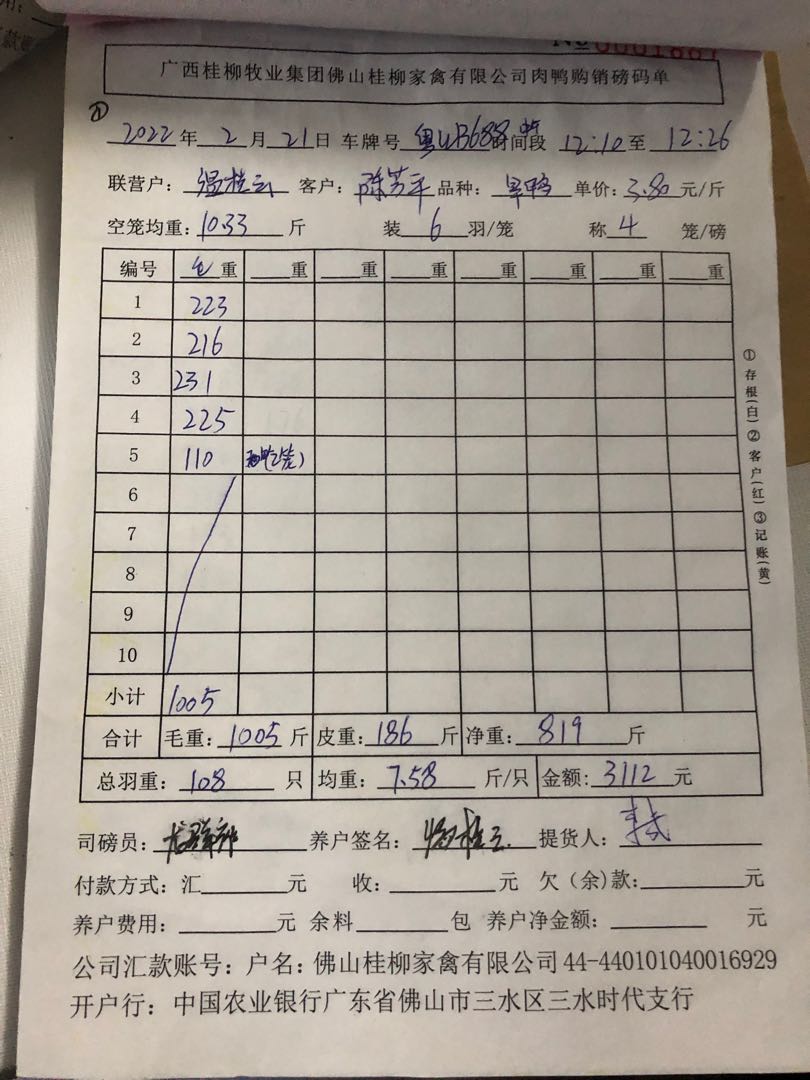 广西桂柳牧业集团佛山桂柳家禽有限公司肉鸭购销磅码单
2022年2月21日 车牌号 时间段 12:10至12:26
联营户：温桂云 客户：陈芳平 品种：旱鸭 单价：3.80元/斤
空笼均重：10.33斤 装6羽/笼 称4笼/磅
编号 毛重 重 重 重 重 重 重 重
1 223
2 216
3 231
4 225
5 110
6
7
8
9
10
小计 1005
合计 毛重：1005斤 皮重：186斤 净重：819斤
总羽重：108只 均重：7.58斤/只 金额：3112元
司磅员： 养户签名： 提货人：
付款方式：汇 元 收： 元 欠（余）款： 元
养户费用： 元 余料 包 养户净金额： 元
公司汇款账号：户名：佛山桂柳家禽有限公司 44-440101040016929
开户行：中国农业银行广东省佛山市三水区三水时代支行
①存根(白)②客户(红)③记账(黄)